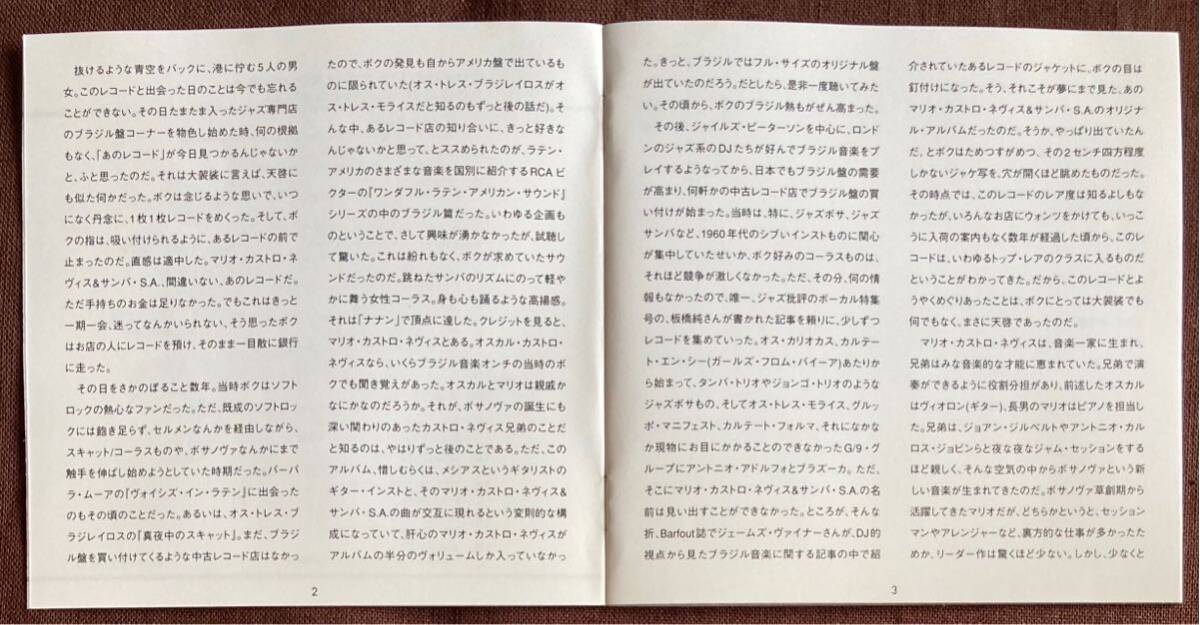 抜けるような青空をバックに、港に佇む5人の男
女。このレコードと出会った日のことは今でも忘れる
ことができない。その日たまたま入ったジャズ専門店
のブラジル盤コーナーを物色し始めた時、何の根拠
もなく、「あのレコード」が今日見つかるんじゃないか
と、ふと思ったのだ。それは大袈裟に言えば、天啓に
も似た何かだった。ボクは念じるような思いで、いつ
になく丹念に、1枚1枚レコードをめくった。そして、ボ
クの指は、吸い付けられるように、あるレコードの前で
止まったのだ。直感は適中した。マリオ・カストロ・ネ
ヴィス&サンバ・S.A.、間違いない、あのレコードだ。
ただ手持ちのお金は足りなかった。でもこれはきっと
一期一会、迷ってなんかいられない、そう思ったボク
はお店の人にレコードを預け、そのまま一目散に銀行
に走った。
その日をさかのぼること数年。当時ボクはソフト
ロックの熱心なファンだった。ただ、既成のソフトロッ
クには飽き足らず、セルメンなんかを経由しながら、
スキャット/コーラスものや、ボサノヴァなんかにまで
触手を伸ばし始めようとしていた時期だった。バーバ
ラ・ムーアの『ヴォイシズ・イン・ラテン』に出会った
のもその頃のことだった。あるいは、オス・トレス・ブ
ラジレイロスの『真夜中のスキャット』。まだ、ブラジ
ル盤を買い付けてくるような中古レコード店はなかっ
たので、ボクの発見も自からアメリカ盤で出ているも
のに限られていた(オス・トレス・ブラジレイロスがオ
ス・トレス・モライスだと知るのもずっと後の話だ)。そ
んな中、あるレコード店の知り合いに、きっと好きな
んじゃないかと思って、とススめられたのが、ラテン・
アメリカのさまざまな音楽を国別に紹介するRCAビ
クターの『ワンダフル・ラテン・アメリカン・サウンド』
シリーズの中のブラジル篇だった。いわゆる企画も
のということで、さして興味が湧かなかったが、試聴し
て驚いた。これは紛れもなく、ボクが求めていたサウ
ンドだったのだ。跳ねたサンバのリズムにのって軽や
かに舞う女性コーラス。身も心も踊るような高揚感。
それは「ナナン」で頂点に達した。クレジットを見ると、
マリオ・カストロ・ネヴィスとある。オスカル・カストロ・
ネヴィスなら、いくらブラジル音楽オンチの当時のボ
クでも聞き覚えがあった。オスカルとマリオは親戚か
なにかなのだろうか。それが、ボサノヴァの誕生にも
深い関わりのあったカストロ・ネヴィス兄弟のことだ
と知るのは、やはりずっと後のことである。ただ、この
アルバム、惜しむらくは、メシアスというギタリストの
ギター・インストと、そのマリオ・カストロ・ネヴィス&
サンバ・S.A.の曲が交互に現れるという変則的な構
成になっていて、肝心のマリオ・カストロ・ネヴィスが
アルバムの半分のヴォリュームしか入っていなかっ
2
た。きっと、ブラジルではフル・サイズのオリジナル盤
が出ていたのだろう。だとしたら、是非一度聴いてみた
い。その頃から、ボクのブラジル熱もがぜん高まった。
その後、ジャイルズ・ピーターソンを中心に、ロンド
ンのジャズ系のDJたちが好んでブラジル音楽をプ
レイするようなってから、日本でもブラジル盤の需要
が高まり、何軒かの中古レコード店でブラジル盤の買
い付けが始まった。当時は、特に、ジャズボサ、ジャズ
サンバなど、1960年代のシブいインストものに関心
が集中していたせいか、ボク好みのコーラスものは、
それほど競争が激しくなかった。ただ、その分、何の情
報もなかったので、唯一、ジャズ批評のボーカル特集
号の、板橋純さんが書かれた記事を頼りに、少しずつ
レコードを集めていった。オス・カリオカス、カルテー
ト・エン・シー(ガールズ・フロム・バイーア)あたりか
ら始まって、タンバ・トリオやジョンゴ・トリオのような
ジャズボサもの、そしてオス・トレス・モライス、グルッ
ポ・マニフェスト、カルテート・フォルマ、それになかな
か現物にお目にかかることのできなかったG/9・グ
ループにアントニオ・アドルフォとブラズーカ。ただ、
そこにマリオ・カストロ・ネヴィス&サンバ・S.A.の名
前は見い出すことができなかった。ところが、そんな
折、Barfout誌でジェームズ・ヴァイナーさんが、DJ的
視点から見たブラジル音楽に関する記事の中で紹
介されていたあるレコードのジャケットに、ボクの目は
釘付けになった。そう、それこそが夢にまで見た、あの
マリオ・カストロ・ネヴィス&サンバ・S.A.のオリジナ
ル・アルバムだったのだ。そうか、やっぱり出ていたん
だ、とボクはためつすがめつ、その2センチ四方程度
しかないジャケ写を、穴が開くほど眺めたものだった。
その時点では、このレコードのレア度は知るよしもな
かったが、いろんなお店にウォンツをかけても、いっこ
うに入荷の案内もなく数年が経過した頃から、このレ
コードは、いわゆるトップ・レアのクラスに入るものだ
ということがわかってきた。だから、このレコードとよ
うやくめぐりあったことは、ボクにとっては大袈裟でも
何でもなく、まさに天啓であったのだ。
マリオ・カストロ・ネヴィスは、音楽一家に生まれ、
兄弟はみな音楽的な才能に恵まれていた。兄弟で演
奏ができるように役割分担があり、前述したオスカル
はヴィオロン(ギター)、長男のマリオはピアノを担当し
た。兄弟は、ジョアン・ジルベルトやアントニオ・カル
ロス・ジョビンらと夜な夜なジャム・セッションをする
ほど親しく、そんな空気の中からボサノヴァという新
しい音楽が生まれてきたのだ。ボサノヴァ草創期から
活躍してきたマリオだが、どちらかというと、セッション
マンやアレンジャーなど、裏方的な仕事が多かったた
めか、リーダー作は驚くほど少ない。しかし、少なくと
3